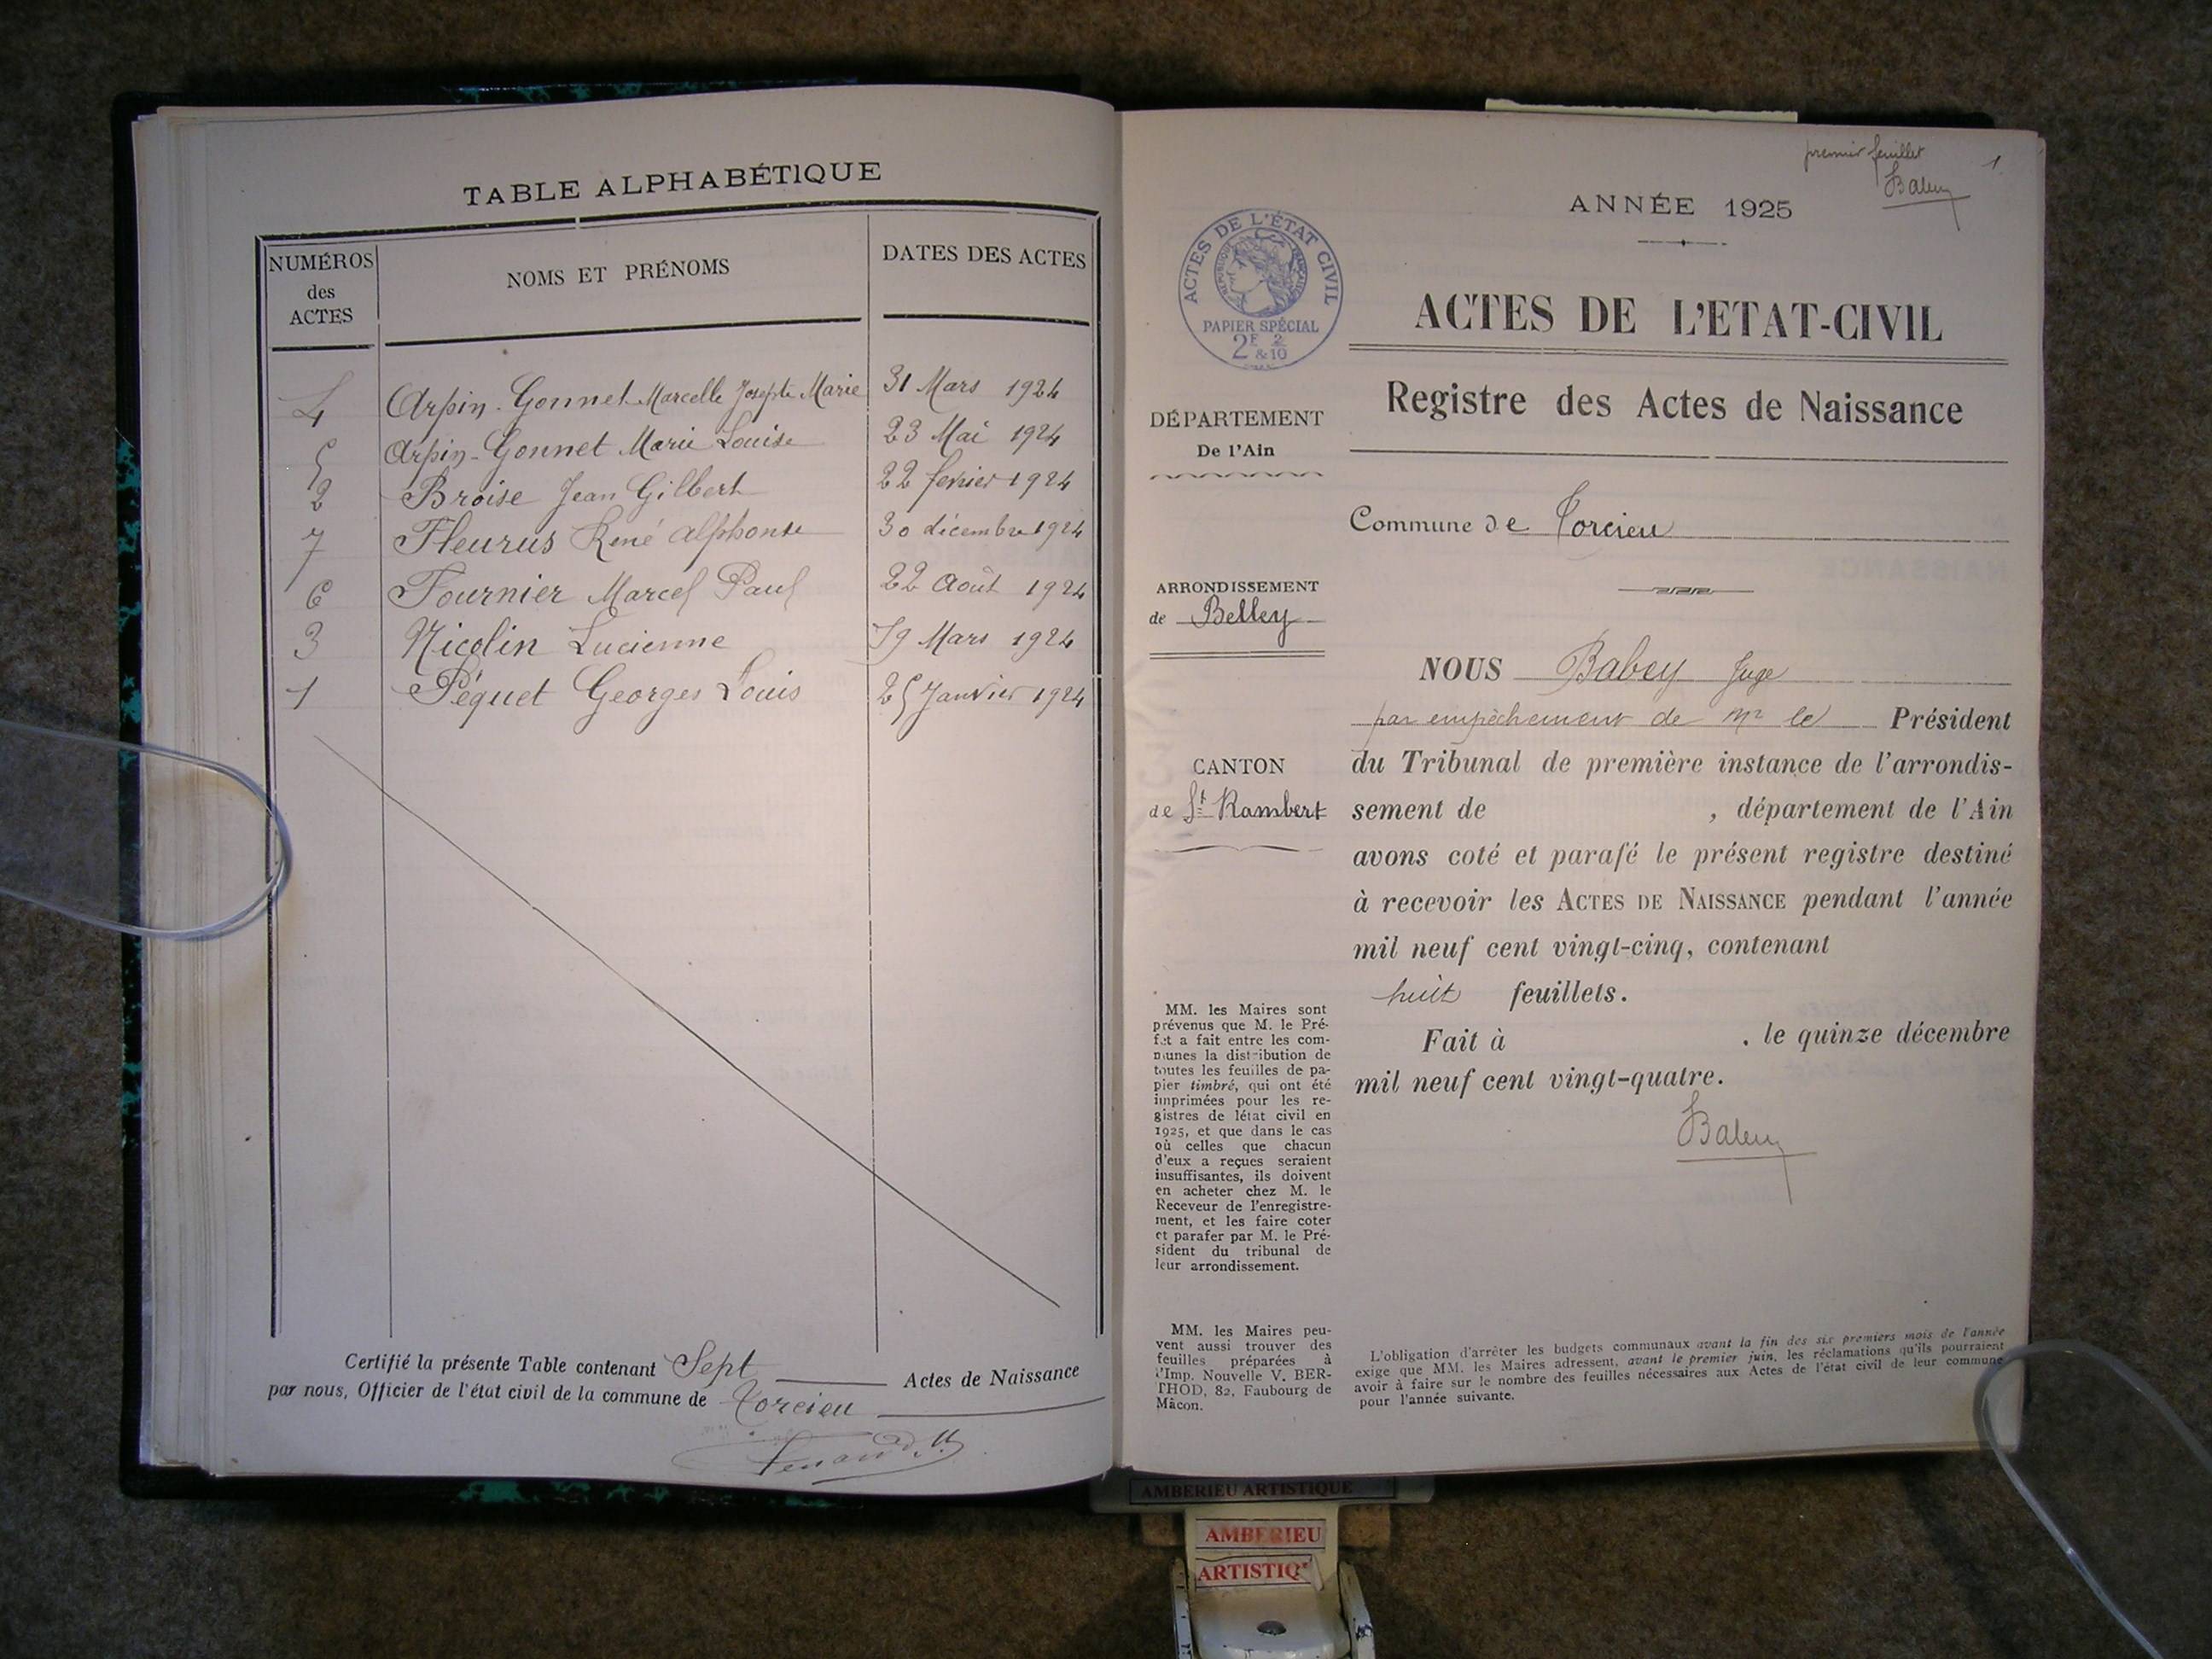 TABLE ALPHABÉTIQUE
NUMÉROS des ACTES
NOMS ET PRÉNOMS
DATES DES ACTES
4 Arpin-Gonnet Marcelle Josephte Marie 31 Mars 1924
5 Arpin-Gonnet Marie Louise 23 Mai 1924
2 Broise Jean Gilbert 22 fevrier 1924
7 Fleurus René Alphonse 30 décembre 1924
6 Fournier Marcel Paul 22 Août 1924
3 Nicolin Lucienne 19 Mars 1924
1 Péquet Georges Louis 25 Janvier 1924
Certifié la présente Table contenant Sept Actes de Naissance
par nous, Officier de l'état civil de la commune de Torcieu
premier feuillet
1
ANNÉE 1925
ACTES DE L'ÉTAT CIVIL
RÉPUBLIQUE FRANÇAISE
PAPIER SPÉCIAL
2F 2
&10
ACTES DE L'ETAT-CIVIL
Registre des Actes de Naissance
DÉPARTEMENT
De l'Ain
Commune de Torcieu
ARRONDISSEMENT
de Belley
CANTON
de St Rambert
NOUS Babey Juge
par empêchement de Mr le Président
du Tribunal de première instance de l'arrondis-
sement de , département de l'Ain
avons coté et parafé le présent registre destiné
à recevoir les ACTES DE NAISSANCE pendant l'année
mil neuf cent vingt-cinq, contenant
huit feuillets.
Fait à , le quinze décembre
mil neuf cent vingt-quatre.
MM. les Maires sont
prévenus que M. le Pré-
fet a fait entre les com-
munes la distribution de
toutes les feuilles de pa-
pier timbré, qui ont été
imprimées pour les re-
gistres de létat civil en
1925, et que dans le cas
où celles que chacun
d'eux a reçues seraient
insuffisantes, ils doivent
en acheter chez M. le
Receveur de l'enregistre-
ment, et les faire coter
et parafer par M. le Pré-
sident du tribunal de
leur arrondissement.
MM. les Maires peu-
vent aussi trouver des
feuilles préparées à
l'Imp. Nouvelle V. BER-
THOD, 82, Faubourg de
Mâcon.
L'obligation d'arrêter les budgets communaux avant la fin des six premiers mois de l'année
exige que MM. les Maires adressent, avant le premier juin, les réclamations qu'ils pourraient
avoir à faire sur le nombre des feuilles nécessaires aux Actes de l'état civil de leur commune
pour l'année suivante.
AMBERIEU ARTISTIQUE
AMBERIEU
ARTISTIQ